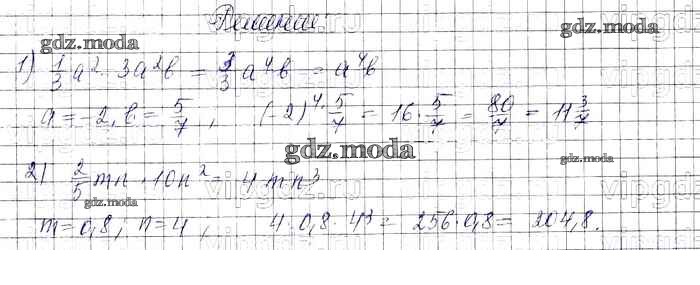 Решение:
gdz.moda
gdz.moda
1) 1/3 a² · 3a²b = 3/3 a⁴b = a⁴b
a = -2, b = 5/7, (-2)⁴ · 5/7 = 16 · 5/7 = 80/7 = 11 3/7
gdz.moda
gdz.moda
2) 2/5 mn · 10n² = 4mn³
gdz.moda
m = 0,8, n = 4, 4 · 0,8 · 4³ = 256 · 0,8 = 204,8.